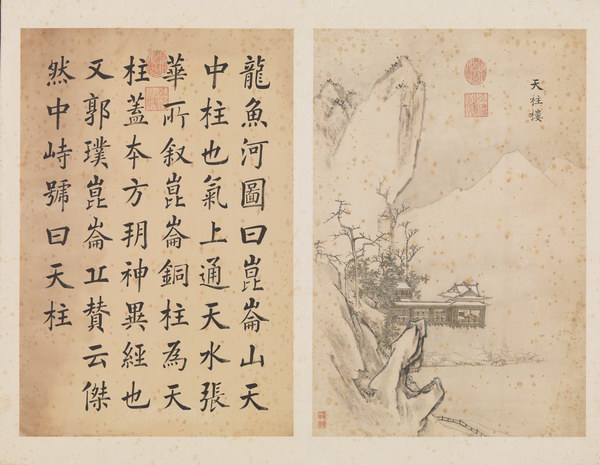 龍魚河圖曰崑崙山天
中柱也氣上通天水張
華所叙崑崙銅柱為天
柱蓋本方朔神異經也
又郭璞崑崙丘賛云傑
然中峙號曰天柱
天柱樓